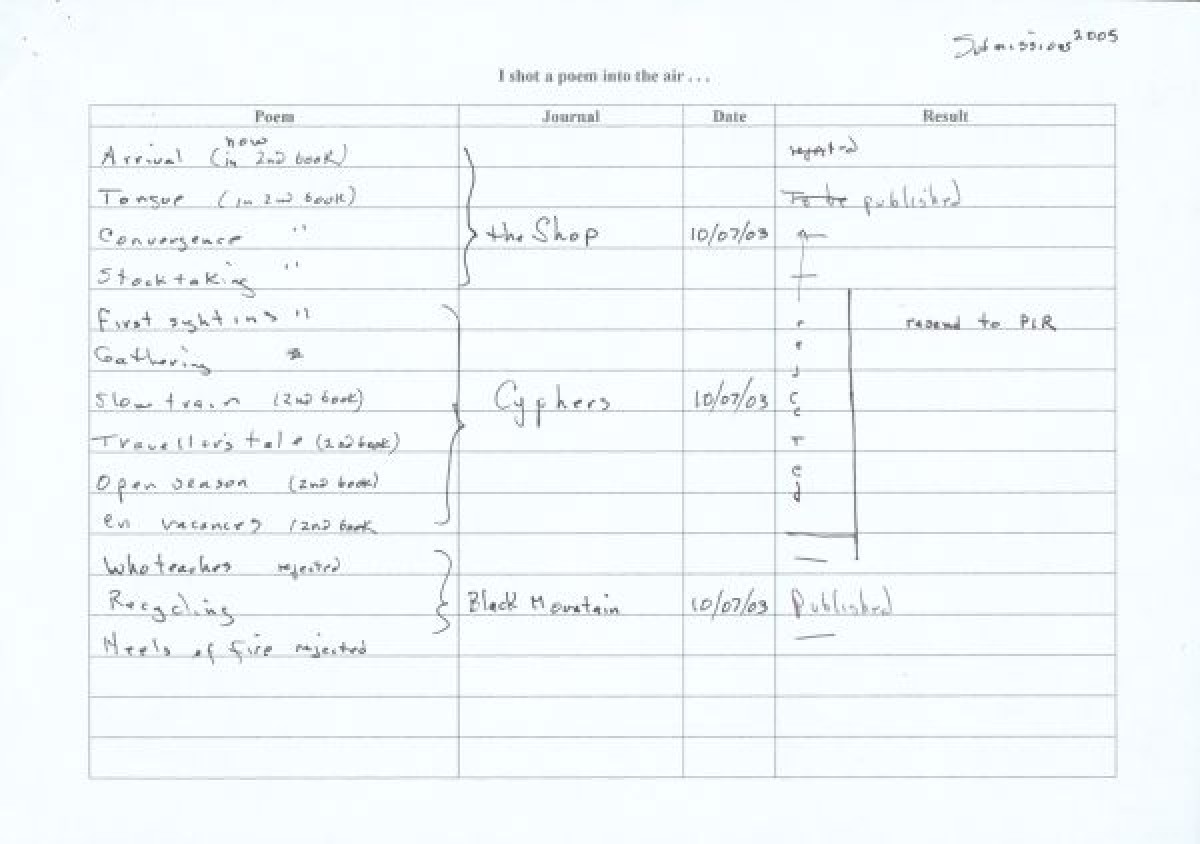 Submissions 2005
I shot a poem into the air . . .
Poem Journal Date Result
now
Arrival (in 2nd book) rejected
Tongue (in 2nd book) To be published
Convergence " the Shop 10/07/03
Stocktaking "
First sighting " resend to PLR
Gathering
Slow train (2nd book) Cyphers 10/07/03 rejected
Traveller's tale (2nd book)
Open season (2nd book)
en vacances (2nd book
Who teaches rejected
Recycling Black Mountain 10/07/03 Published
Heels of fire rejected